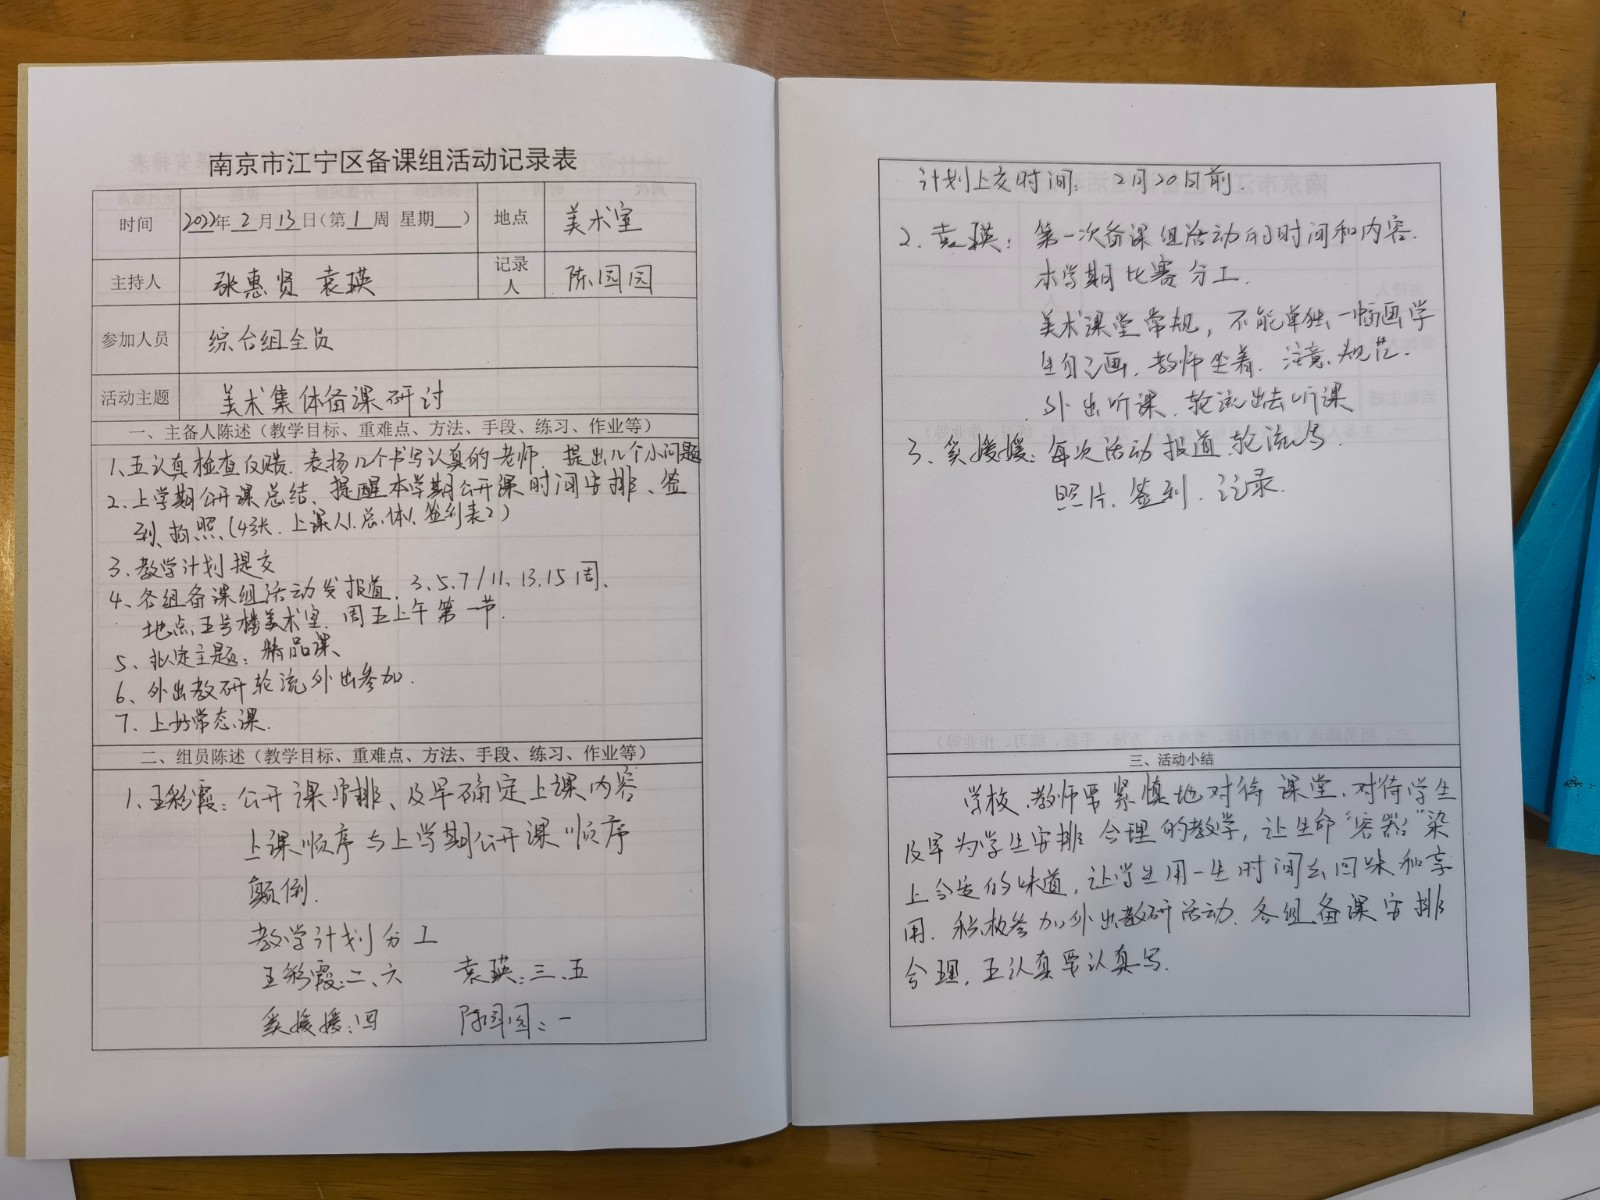 南京市江宁区备课组活动记录表
时间 2022年2月13日(第1周 星期 ) 地点 美术室
主持人 张惠贤 袁瑛 记录人 陈园园
参加人员 综合组全员
活动主题 美术集体备课研讨
一、主备人陈述(教学目标、重难点、方法、手段、练习、作业等)
1、五认真检查反馈. 表扬几个书写认真的老师, 提出几个小问题
2、上学期公开课总结、提醒本学期公开课时间安排、签
到、拍照.(4张. 上课人1.总体1.签到表2)
3、教学计划提交
4、各组备课组活动发报道. 3.5.7/11.13.15周.
地点:五号楼美术室. 周五上午第一节.
5、拟定主题:精品课
6、外出教研轮流外出参加.
7、上好常态课.
二、组员陈述(教学目标、重难点、方法、手段、练习、作业等)
1、王彩霞: 公开课安排、及早确定上课内容
上课顺序与上学期公开课顺序
颠倒.
教学计划分工
王彩霞:二、六 袁瑛:三、五
奚媛媛:四 陈园园:一
计划上交时间: 2月20日前.
2. 袁瑛: 第一次备课组活动的时间和内容.
本学期比赛分工.
美术课堂常规, 不能单独一幅画学
生自己画. 教师坐着. 注意规范.
外出听课. 轮流出去听课
3、奚媛媛: 每次活动报道轮流写.
照片. 签到. 记录.
三、活动小结
学校、教师要紧慎地对待课堂, 对待学生
及早为学生安排合理的教学, 让生命“容器”染
上合适的味道, 让学生用一生时间去回味和享
用. 积极参加外出教研活动. 各组备课安排
合理, 五认真要认真写.